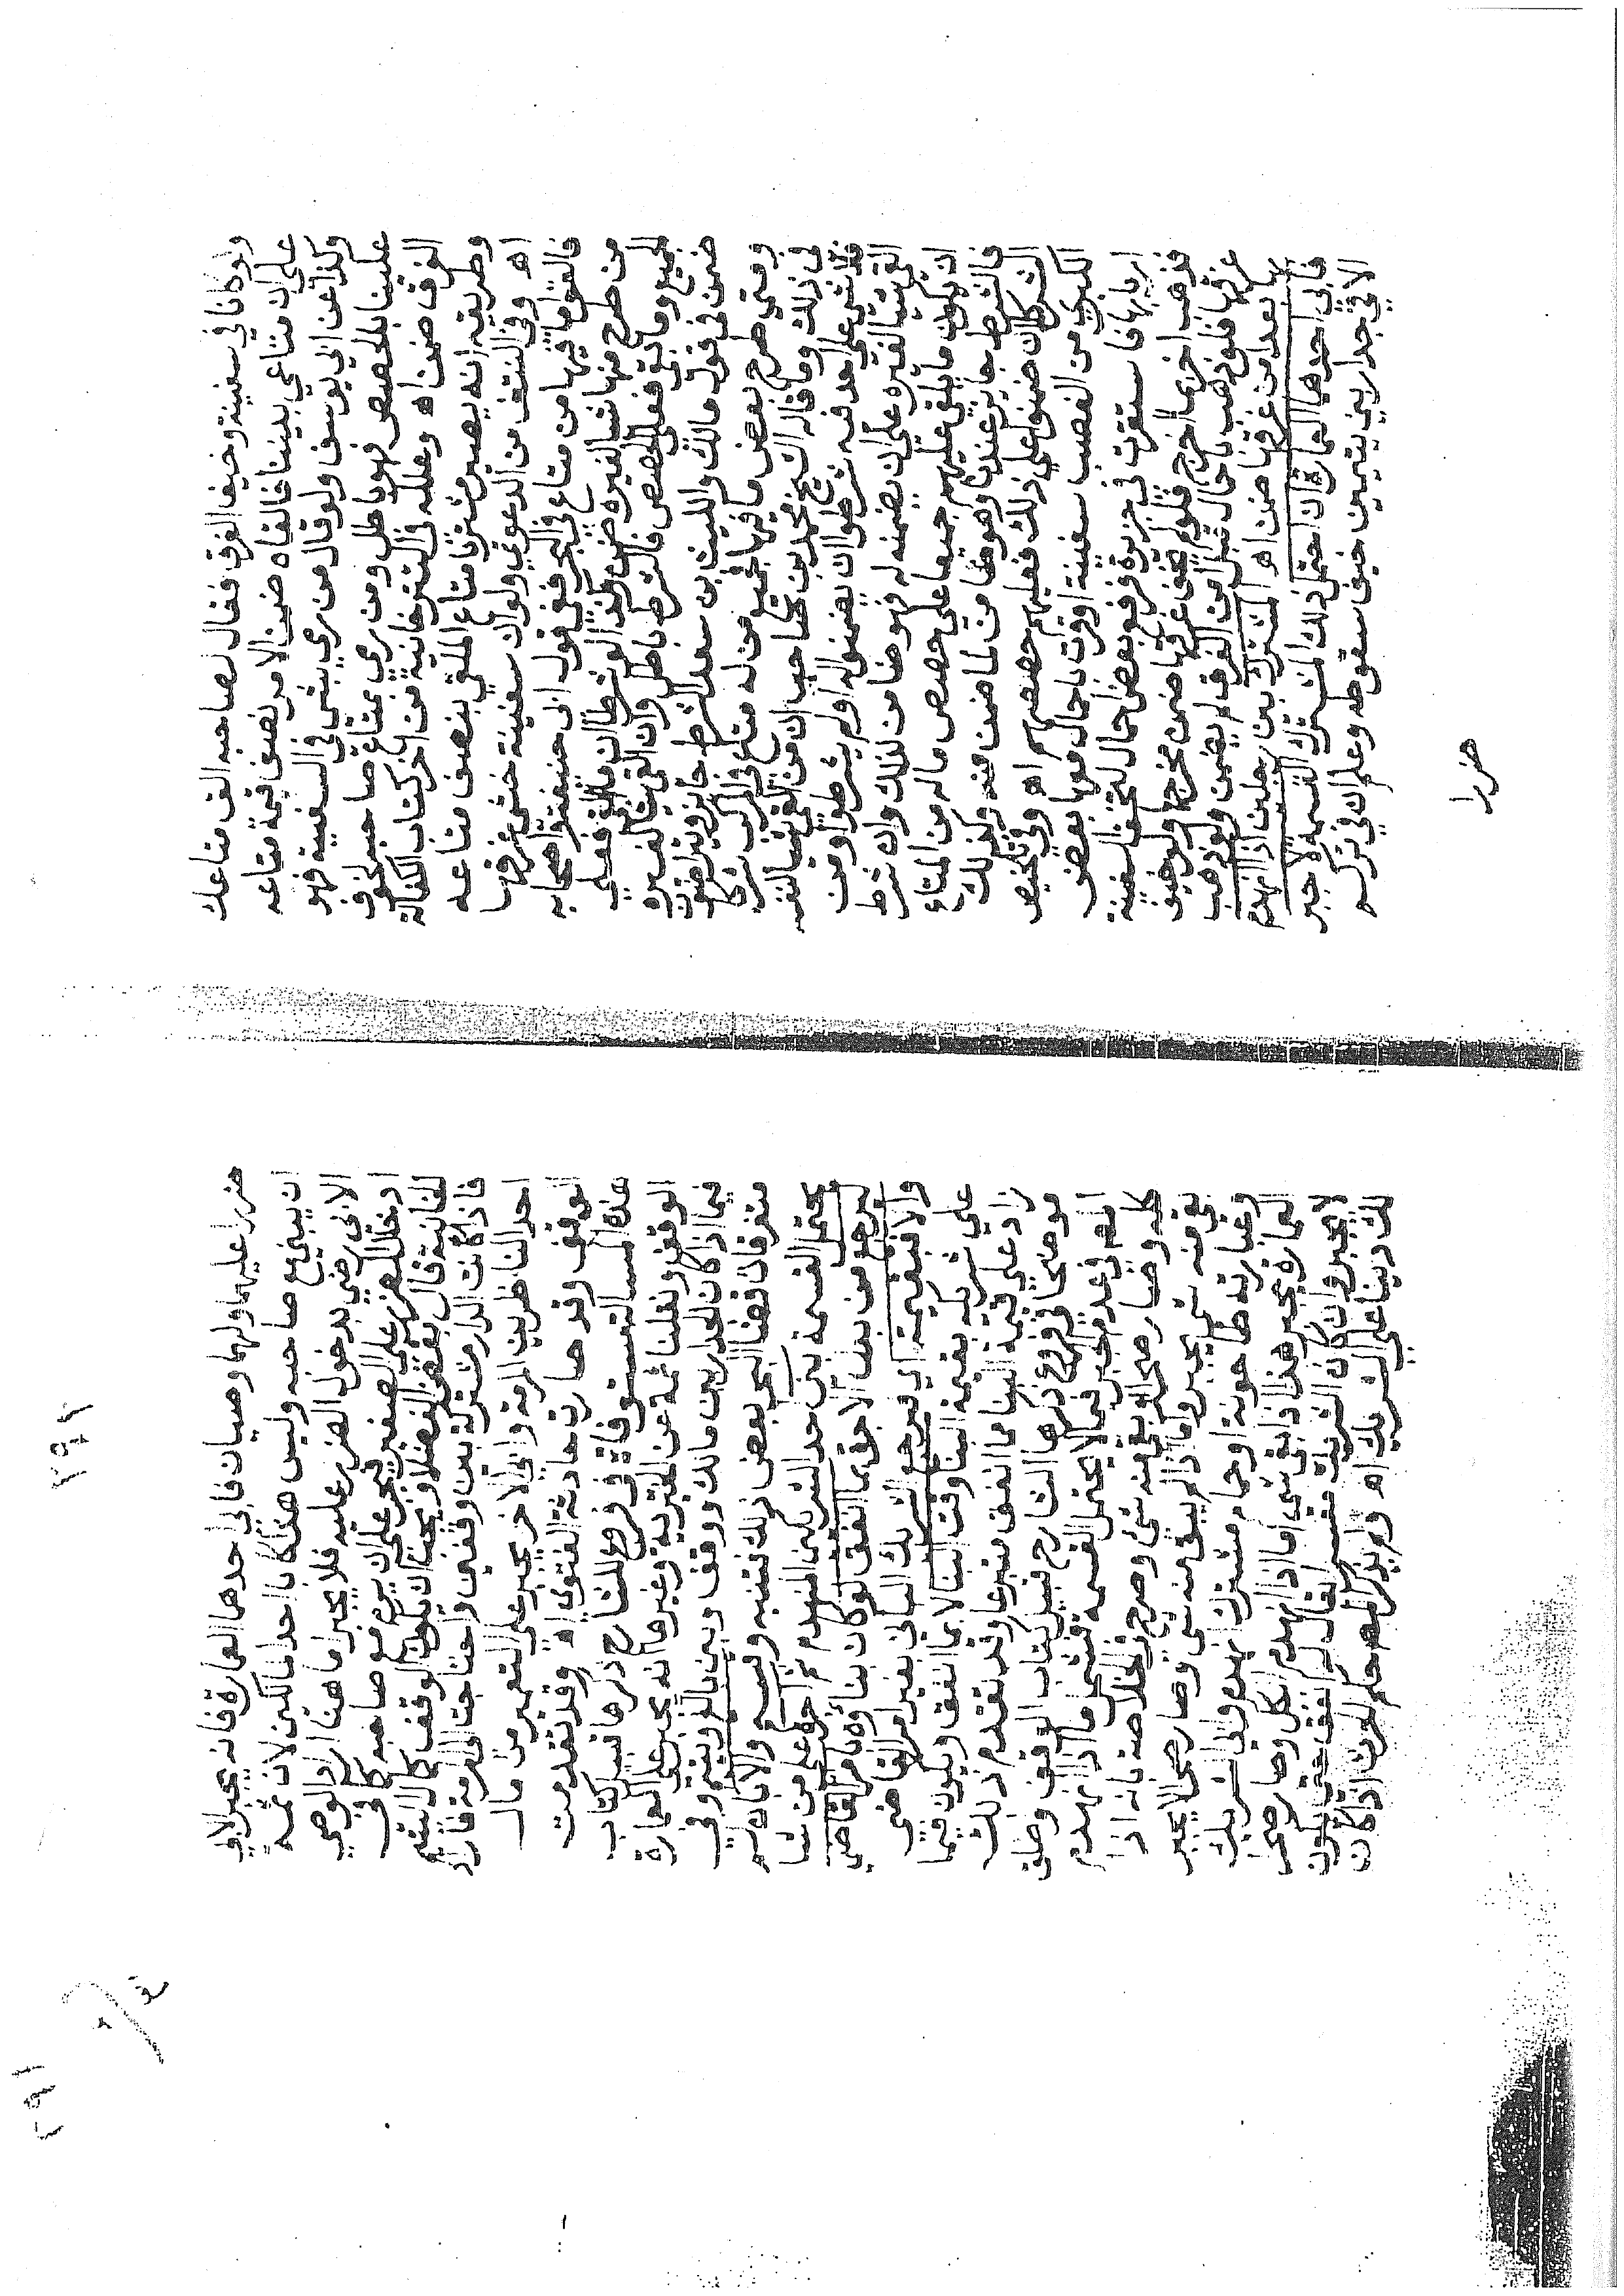 ولو كانا في سفينة وخيفا الغرق فقال لصاحبه الق متاعك
على ان متاعي بيننا فالقاه ضمن الامر نصف قيمة متاعه
وكذا عن ابي يوسف ولو قال من رمى بشي في السفينة فهو
علينا بالحصص فهو باطل ومن رمى بمتاع صاحبه لخوف
الغرق ضمن اه وعلله في التترخانية من اخر كتاب الكفالة
وطريقه انه يصير مشتريا متاع الملقي بنصف متاعه
اه وفي النتف من الدعوي ولو ان سفينة خشي غرقها
فالقوا ما فيها من متاع في البحر ففي قول ابي حنيفة واصحابه
من طرح منها شيا لغيره ضمن وكذا لو شرطا ان ما يلقى فعلى
الجميع وما بقي فعلى الحصص فالشرط باطل وان القى شيا لغيره
ضمن في قول مالك والليث بن سعد الشرط جائز ويتراضون
ومتى طرح بعض ما فيها فجميع من له متاع في المركب شركا
في ذلك وما قاله الشيخ محمد بن صاحب ان من القى شيا لنفسه
فلا شي على احد فيه شرطوا ان يضمنوا له او لم يشرطوا ومن
القى شيا لغيره على ان يضمنه له فهو ضامن لذلك وان شرط
ان يكون ما يلقى عليهم جميعا على حصص ماله من المتاع
فالشرط جايز عندنا وهو ضامن لما ضمن منه وكذلك
الشركا ان ضمنوا على ذلك فعليهم حصصهم اه وفي تلخيص
الكبرى من الغصب سفينة اوقرت باحمال معها بعض
اربابها فاستقرت في جزيرة فرفع بعض احمال لتخف السفينة
فذهب اخر بما اخرج فلو لم يخف غرقها ضمن مخرجها ولو خيف
غرقها فلو ذهب باحمال قبل امن الغرق لم يضمن ولو ذهب
بها بعد امن غرقها ضمن اه المشترك بين رجلين اذا انهدم
فابى احدهما العمارة ان احتمل ذلك المشترك القسمة لا جبر
الا في جدار بين يتيمين خيف سقوطه وعلم ان في تركه
ضررا
ضررا عليهما ولهما وصيان فابى احدهما العمارة فانه يجبر الابي
ان يبني مع صاحبه وليس هذا كابا احد المالكين لان ثمة
الابي رضي بدخول الضرر عليه فلا يجبر اما هنا اراد الوصي
ادخال الضرر على الصغير فيجبر على ان يرم مع صاحبه كما في
الخانية قال بعض الفضلا ويجب ان يكون الوقف كمال اليتيم
فاذا كانت الدار مشتركة بين وقفين واحتاجت الى المرمة فاراد
احد الناظرين المرمة وابى الاخر يجبر على التعمير من مال
الوقف وقد صارت حادثة الفتوى اه وقد تقدمت
هذه المسالة مستوفاة في فرع للشارح ذكرها قبيل كتاب
الوقف ونقلنا ثمة عن الخيرية وغيرها انه يجبر على العمارة
فيما اذا كان الجدار بين مالك ووقف وبين بالغ ويتيم وفي
متفرقات قضا البحر بعض ذلك فتنبه وقسم والا بان لم
يحتمل القسمة بين احد الشريكين المنهدم ثم اجره على من شا
ليرجع من بدل الاجرة بما انفق لو كان بناؤه بامر القاضي
والا فبقيمة اي فيرجع الشريك الباني بغير امر القاضي
على شريكه بقيمة البنا وقت البنا لا بما انفق ويكون فيما
زاد على قيمة البنا مما انفق متبرعا وقد تقدم ذلك
موضحا في فروع ذكرها الشارح قبيل كتاب الوقف وظاهر
المص في عدم الجبر فيما لا يحتمل القسمة فيشمل ما اذا انهدم
كله وصار صحرا او بقي منه شي وصرح في الخلاصة بانه اذا
بقي منه شي يجبر واما اذا لم يبق منه شي وصار صحرا لا يجبر
وعبارته طاحونة او حمام مشترك انهدم وابى الشريك
العمارة يجبر هذا اذا بقي شي اما اذا انهدم الكل وصار صحرا
لا يجبر وان كان الشريك معسرا يقال له انفق حتى يكون
لك دينا على الشريك اه ولم يذكر المص حكم المؤن اذا كان
٢٩٢
٢٩١